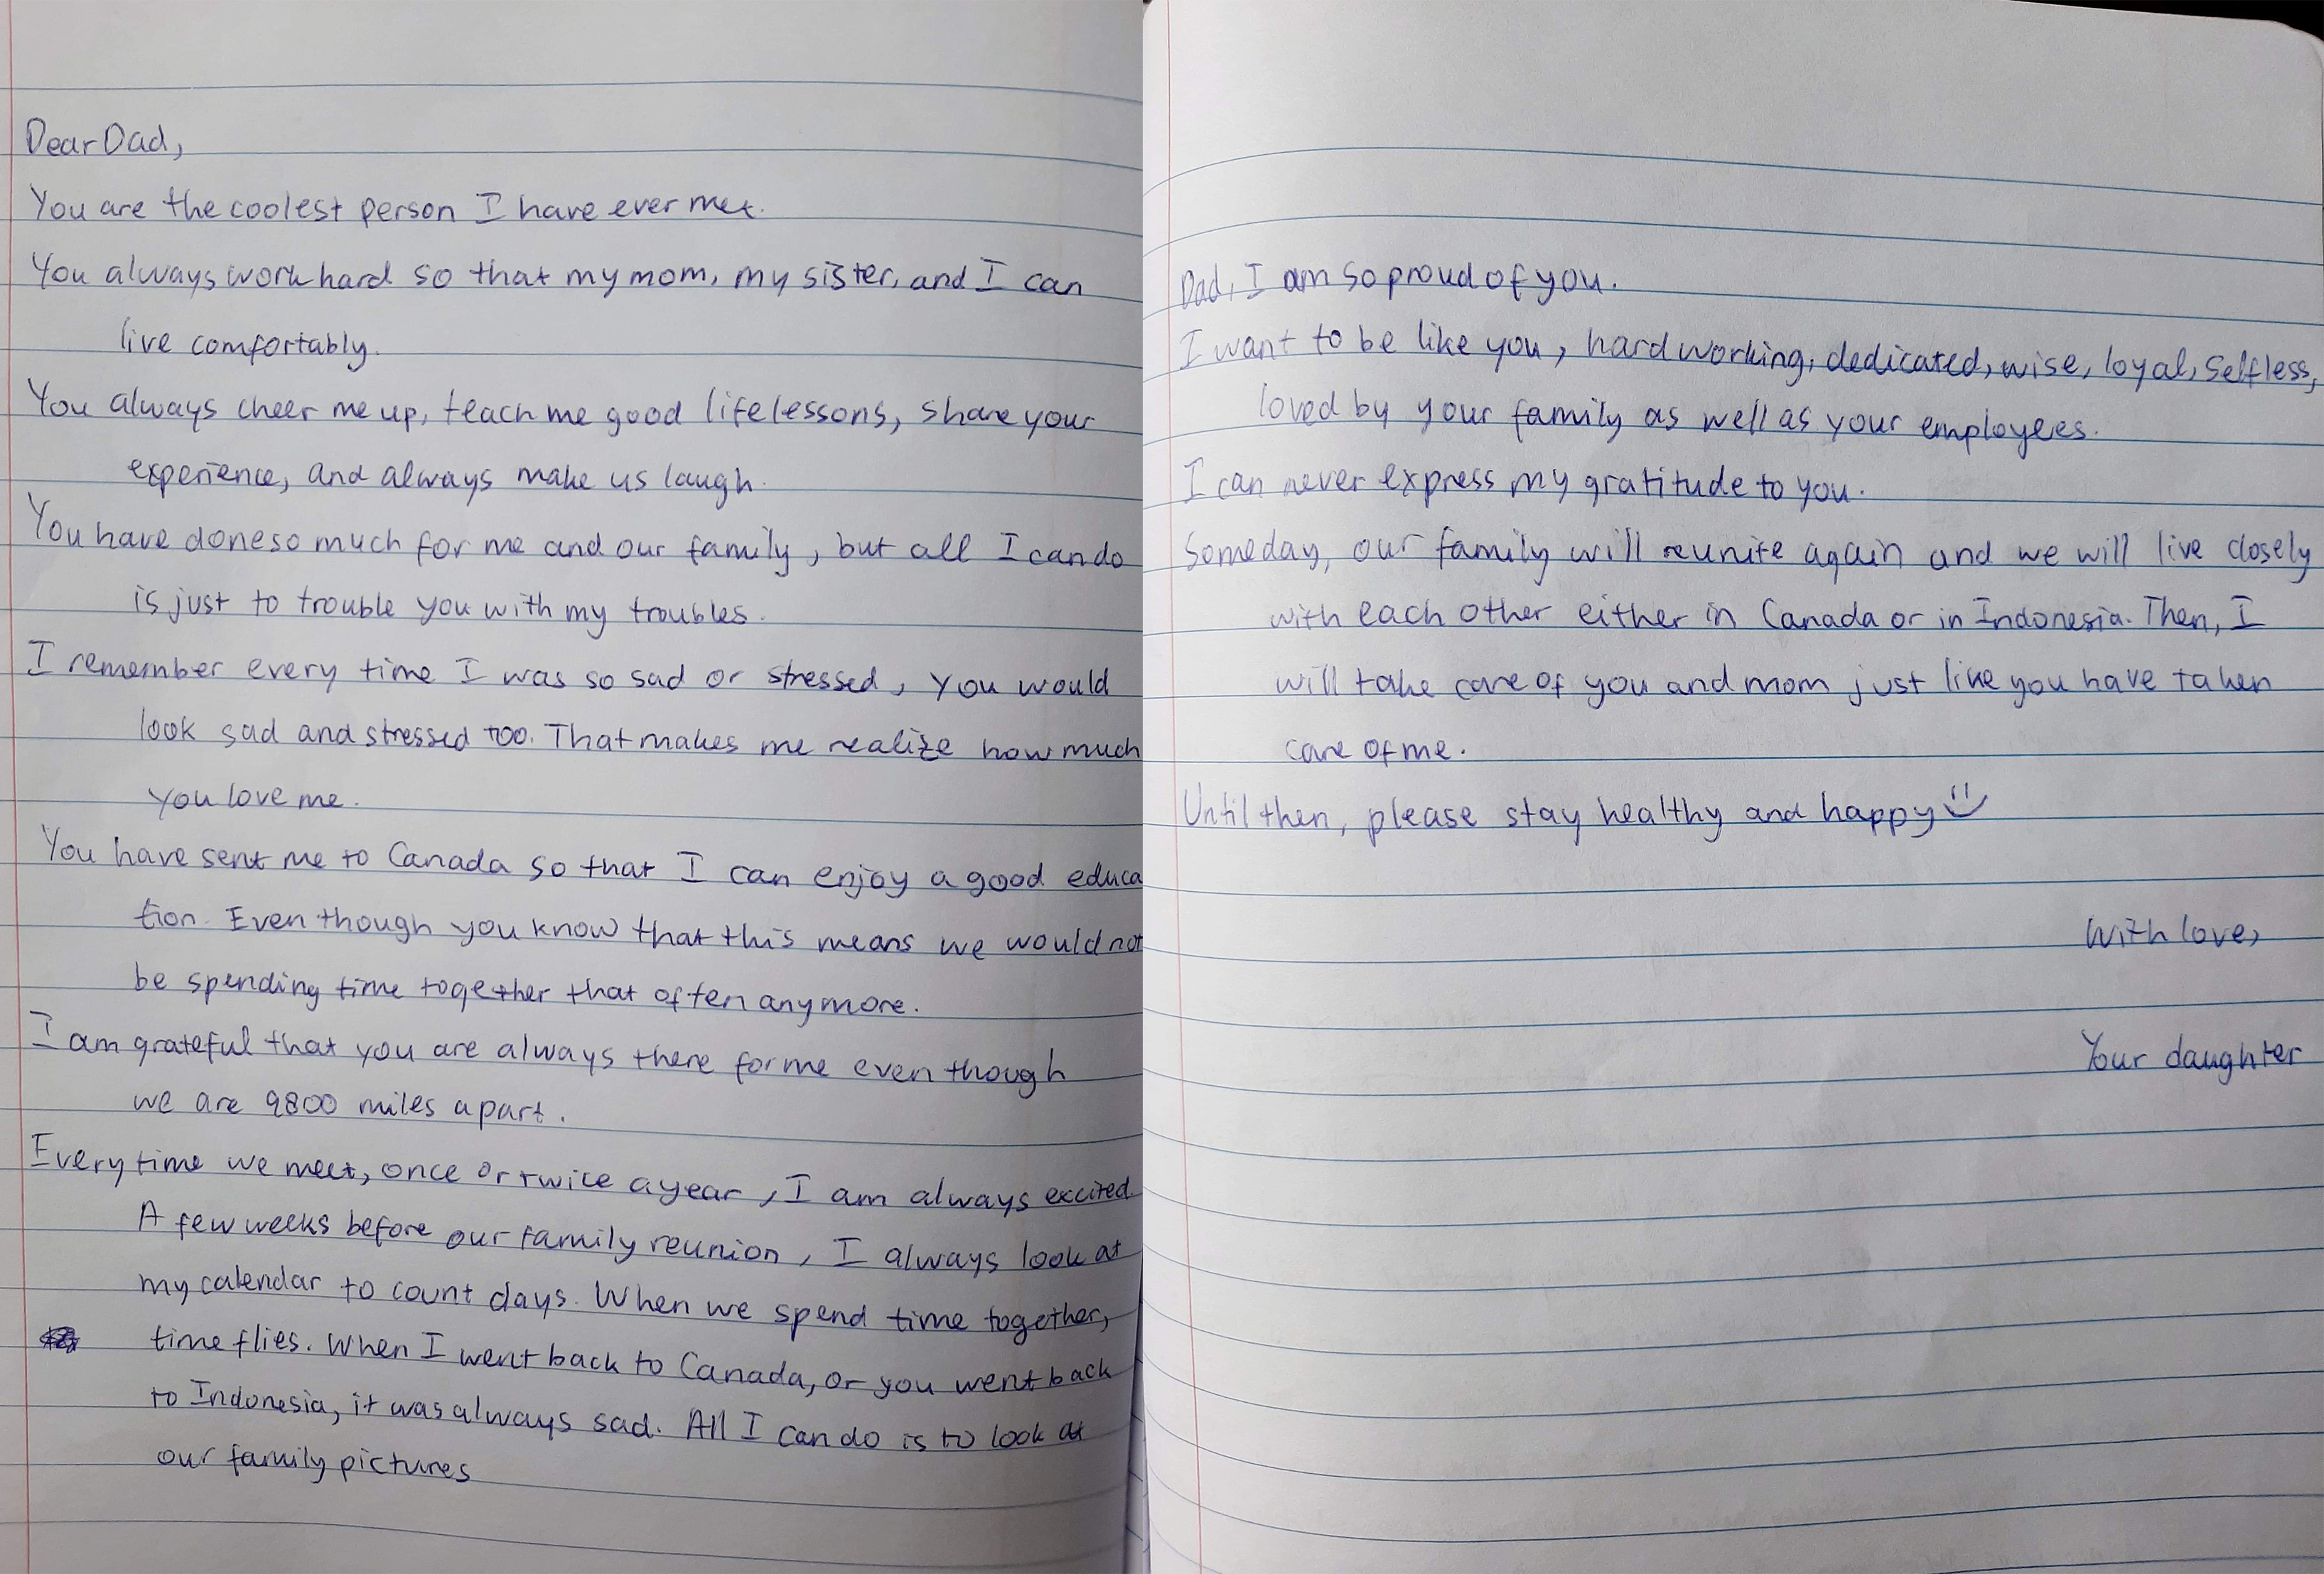 Dear Dad,
You are the coolest person I have ever met.
You always work hard so that my mom, my sister, and I can
live comfortably.
You always cheer me up, teach me good life lessons, share your
experience, and always make us laugh.
You have done so much for me and our family, but all I can do
is just to trouble you with my troubles.
I remember every time I was so sad or stressed, you would
look sad and stressed too. That makes me realize how much
you love me.
You have sent me to Canada so that I can enjoy a good educa
tion. Even though you know that this means we would not
be spending time together that often anymore.
I am grateful that you are always there for me even though
we are 9800 miles apart.
Every time we meet, once or twice a year, I am always excited.
A few weeks before our family reunion, I always look at
my calendar to count days. When we spend time together,
time flies. When I went back to Canada, or you went back
to Indonesia, it was always sad. All I can do is to look at
our family pictures
Dad, I am so proud of you.
I want to be like you, hard working, dedicated, wise, loyal, selfless,
loved by your family as well as your employees.
I can never express my gratitude to you.
Someday, our family will reunite again and we will live closely
with each other either in Canada or in Indonesia. Then, I
will take care of you and mom just like you have taken
care of me.
Until then, please stay healthy and happy
With love,
Your daughter